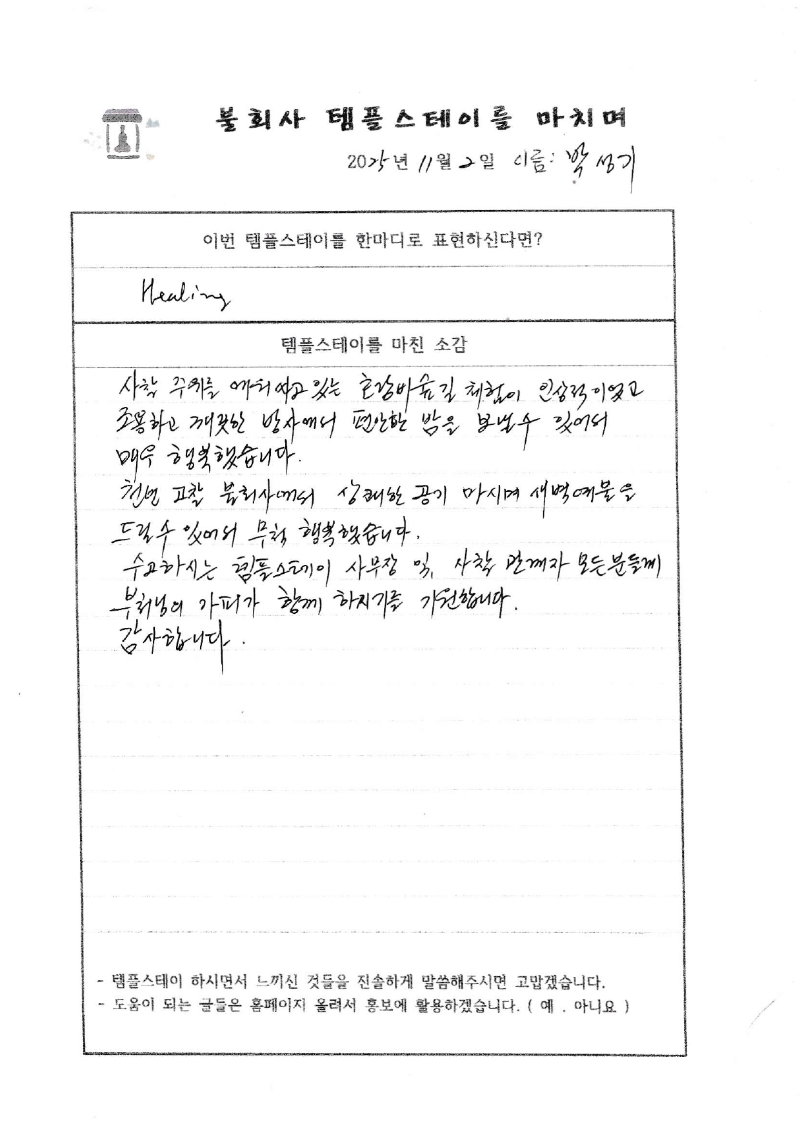 불회사 템플스테이를 마치며
2025년 11월 2일 이름: 박성기
이번 템플스테이를 한마디로 표현하신다면?
Healing
템플스테이를 마친 소감
사찰 주위를 에워싸고 있는 편백숲길 체험이 인상적이었고
조용하고 깨끗한 방사에서 편안한 밤을 보낼 수 있어서
매우 행복했습니다.
천년 고찰 불회사에서 상쾌한 공기 마시며 새벽예불을
드릴 수 있어서 무척 행복했습니다.
수고하시는 템플스테이 사무장 및, 사찰 관계자 모든 분들께
부처님의 가피가 함께 하시기를 기원합니다.
감사합니다.
- 템플스테이 하시면서 느끼신 것들을 진솔하게 말씀해주시면 고맙겠습니다.
- 도움이 되는 글들은 홈페이지 올려서 홍보에 활용하겠습니다. ( 예 . 아니요 )